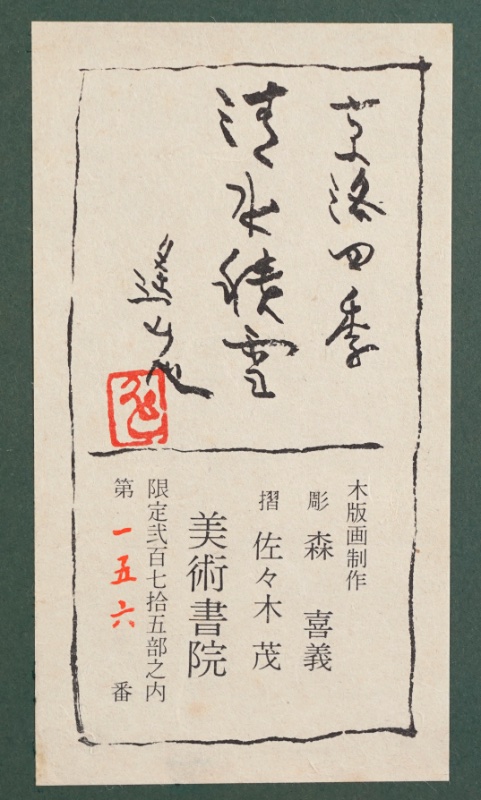 京洛四季
清水積雪
木版画制作
彫 森 喜義
摺 佐々木 茂
美術書院
限定弐百七拾五部之内
第 一五六 番